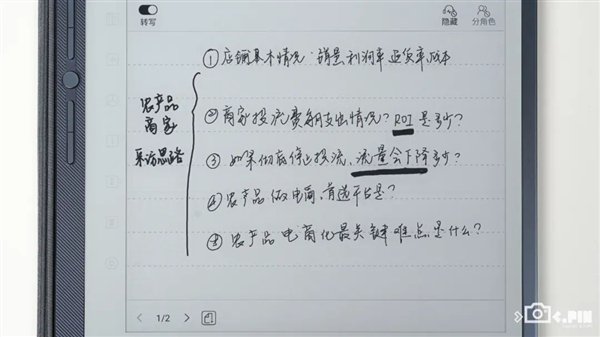 转写
隐藏
分角色
①店铺基本情况:销量 利润率 退货率 成本
农产品
商家
采访思路
②商家投流费用支出情况?ROI是多少?
③如果彻底停止投流,流量会下降多少?
④农产品做电商,首选平台是?
⑤农产品电商化最关键难点是什么?
1/2
C.PIN